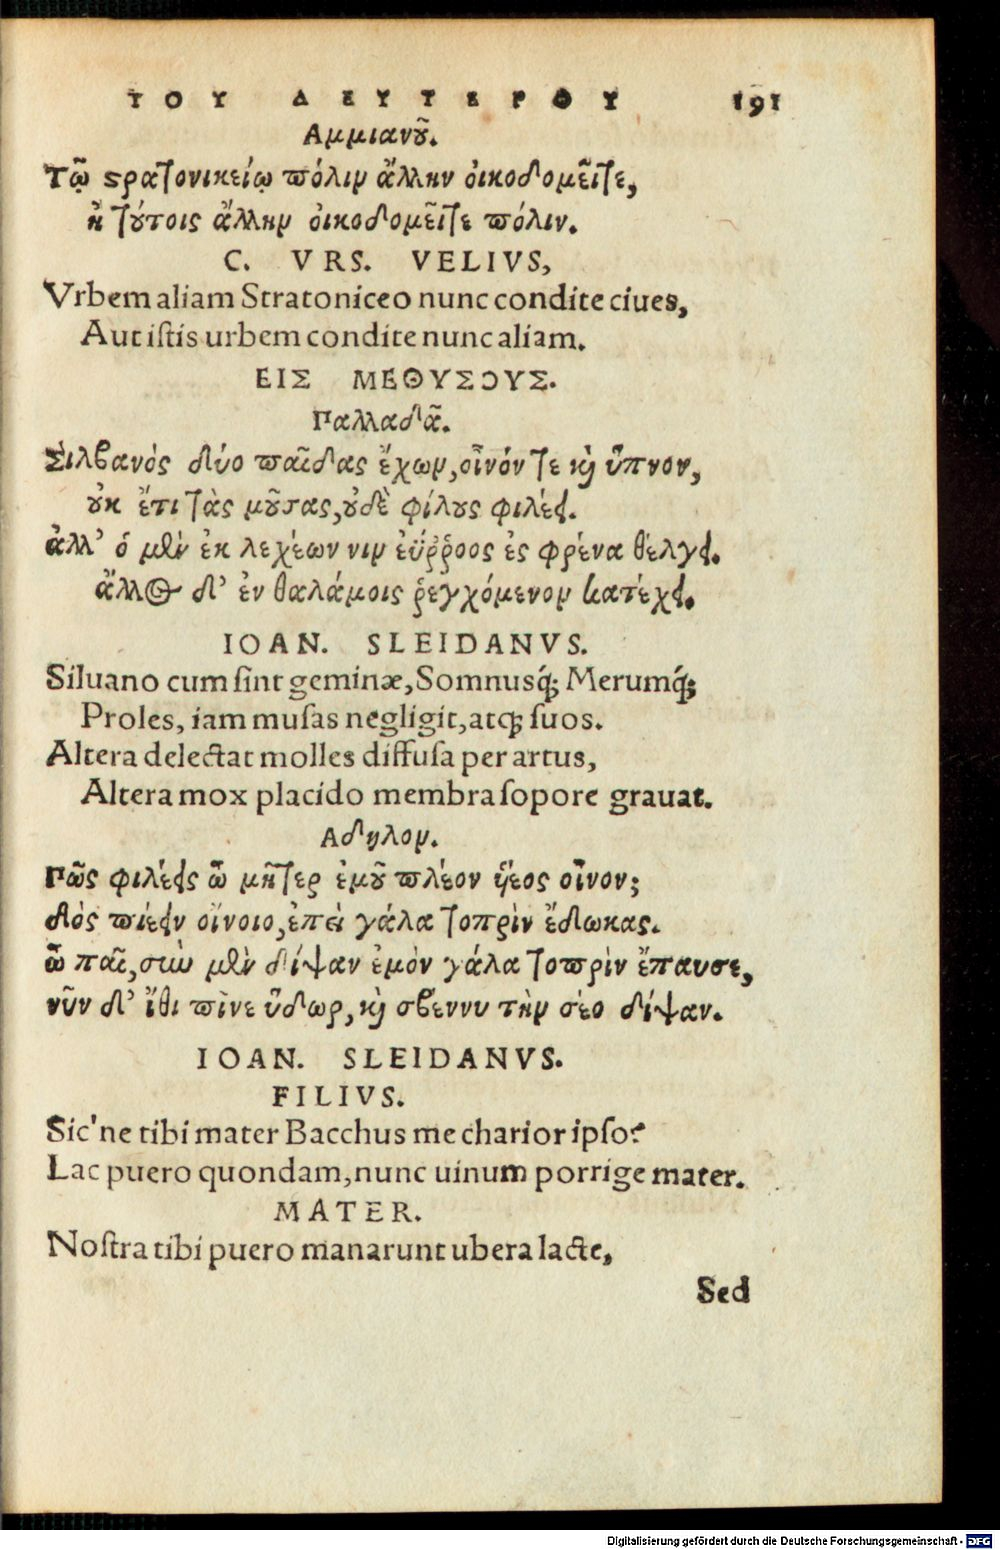 ΤΟΥ ΔΕΥΤΕΡΟΥ 191
Αμμιανȣ͂.
Τῷ ϛρατονικείῳ πόλιν ἄλλην οἰκοδομεῖτε,
ἢ τȣ́τοις ἄλλην οἰκοδομεῖτε πόλιν.
C. VRS. VELIVS,
Vrbem aliam Stratoniceo nunc condite ciues,
Aut iſtis urbem condite nunc aliam.
ΕΙΣ ΜΕΘΥΣΟΥΣ.
Παλλαδᾶ.
Σιλβανὸς δύο παῖδας ἔχων, οἶνόν τε κὶ ὕπνον,
ȣ̓κ ἔτι τὰς μȣ͂σας, ȣ̓δὲ φίλȣς φιλέει.
ἀλλ' ὁ μὲν ἐκ λεχέων νιν ἐΰῤῥοος ἐς φρένα θέλγει.
ἄλλος δ' ἐν θαλάμοις ῥεγχόμενον κατέχει.
IOAN. SLEIDANVS.
Siluano cum ſint geminæ, Somnusq́; Merumq́;
Proles, iam muſas negligit, atq; ſuos.
Altera delectat molles diffuſa per artus,
Altera mox placido membra ſopore grauat.
Αδηλον.
Πῶς φιλέεις ὦ μῆτερ ἐμȣ͂ πλέον ὑέος οἶνον;
δὸς πιέειν οἴνοιο, ἐπεὶ γάλα τοπρὶν ἔδωκας.
ὦ παῖ, σὴν μὲν δίψαν ἐμὸν γάλα τοπρὶν ἔπαυσε,
νῦν δ' ἴθι πῖνε ὕδωρ, κὶ σβεννυ τὴν σέο δίψαν.
IOAN. SLEIDANVS.
FILIVS.
Sic'ne tibi mater Bacchus me charior ipſo?
Lac puero quondam, nunc uinum porrige mater.
MATER.
Noſtra tibi puero manarunt ubera lacte,
Sed
Digitalisierung gefördert durch die Deutsche Forschungsgemeinschaft - DFG